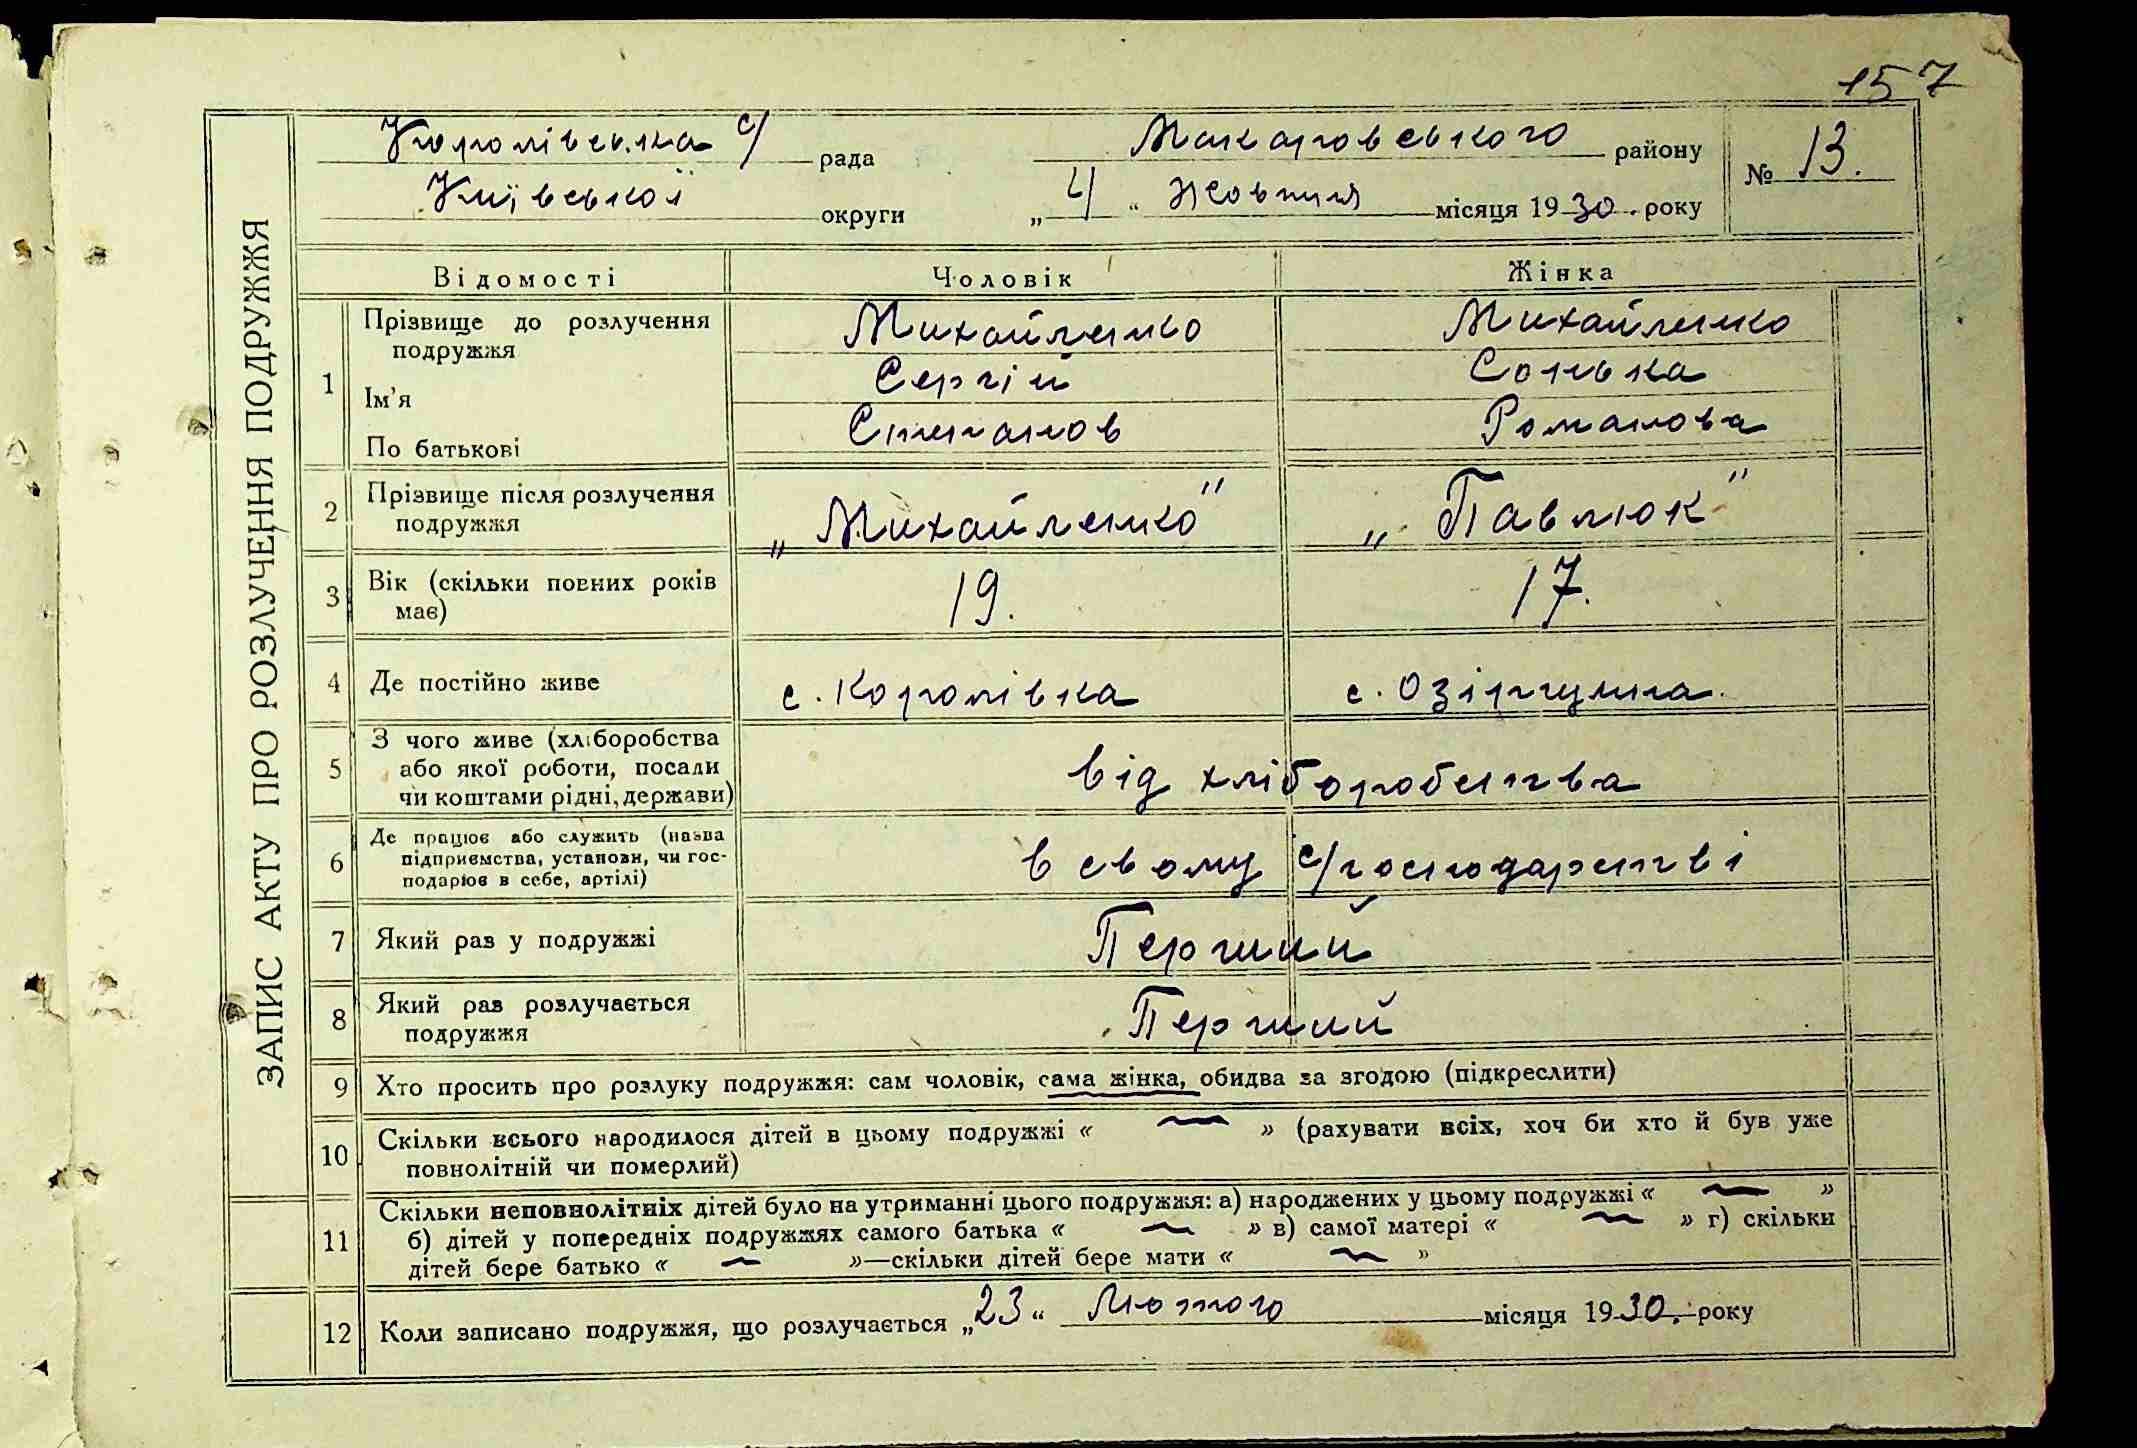 157
ЗАПИС АКТУ ПРО РОЗЛУЧЕННЯ ПОДРУЖЖЯ
Королівська с/ рада Макаровського району № 13.
Київської округи „4“ Жовтня місяця 1930. року
Відомості Чоловік Жінка
1 Прізвище до розлучення подружжя Михайленко Михайленко
Ім'я Сергій Сонька
По батькові Степанов Романова
2 Прізвище після розлучення подружжя „Михайленко" „Павлюк"
3 Вік (скільки повних років має) 19. 17.
4 Де постійно живе с. Королівка с. Озірщина.
5 З чого живе (хліборобства або якої роботи, посади чи коштами рідні, держави) від хліборобства
6 Де працює або служить (назва підприємства, установи, чи господарює в себе, артілі) в свому с/господарстві
7 Який раз у подружжі Перший
8 Який раз розлучається подружжя Перший
9 Хто просить про розлуку подружжя: сам чоловік, сама жінка, обидва за згодою (підкреслити)
10 Скільки всього народилося дітей в цьому подружжі « — » (рахувати всіх, хоч би хто й був уже
повнолітній чи померлий)
11 Скільки неповнолітніх дітей було на утриманні цього подружжя: а) народжених у цьому подружжі « — »
б) дітей у попередніх подружжях самого батька « — » в) самої матері « — » г) скільки
дітей бере батько « — »—скільки дітей бере мати « — »
12 Коли записано подружжя, що розлучається „23“ Лютого місяця 1930. року